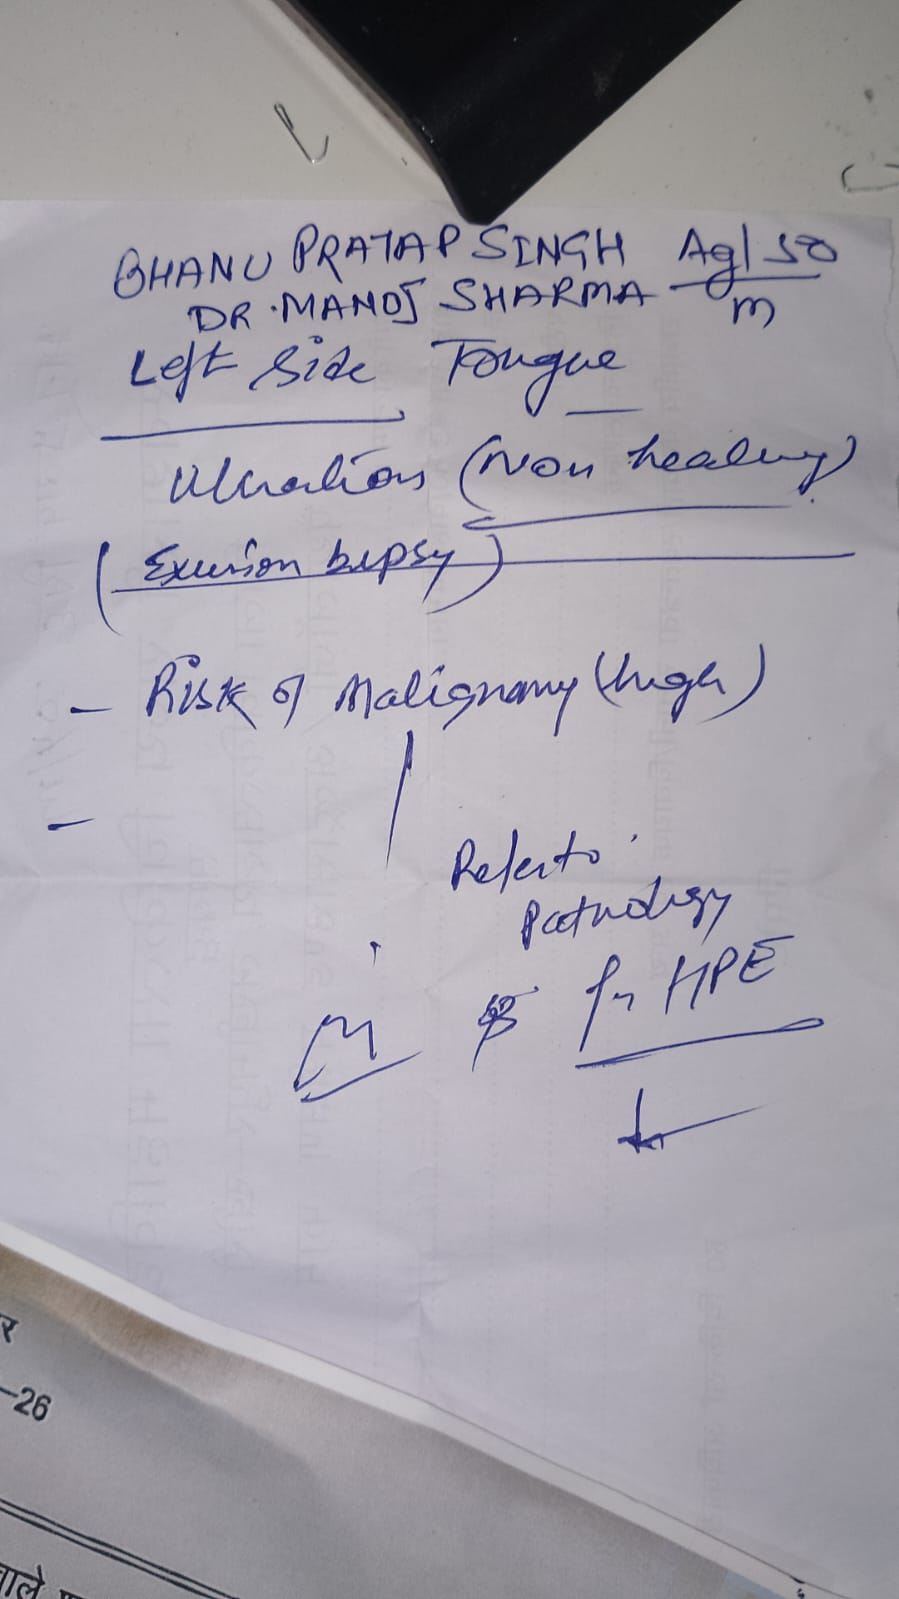 BHANU PRATAP SINGH Ag/50
DR. MANOJ SHARMA m
Left Side Tongue
Ulcrations (Non healing)
(Excision bipsy)
- Risk of Malignany (high)
-
Refer to
Pathology
for HPE
र
-26
वाले